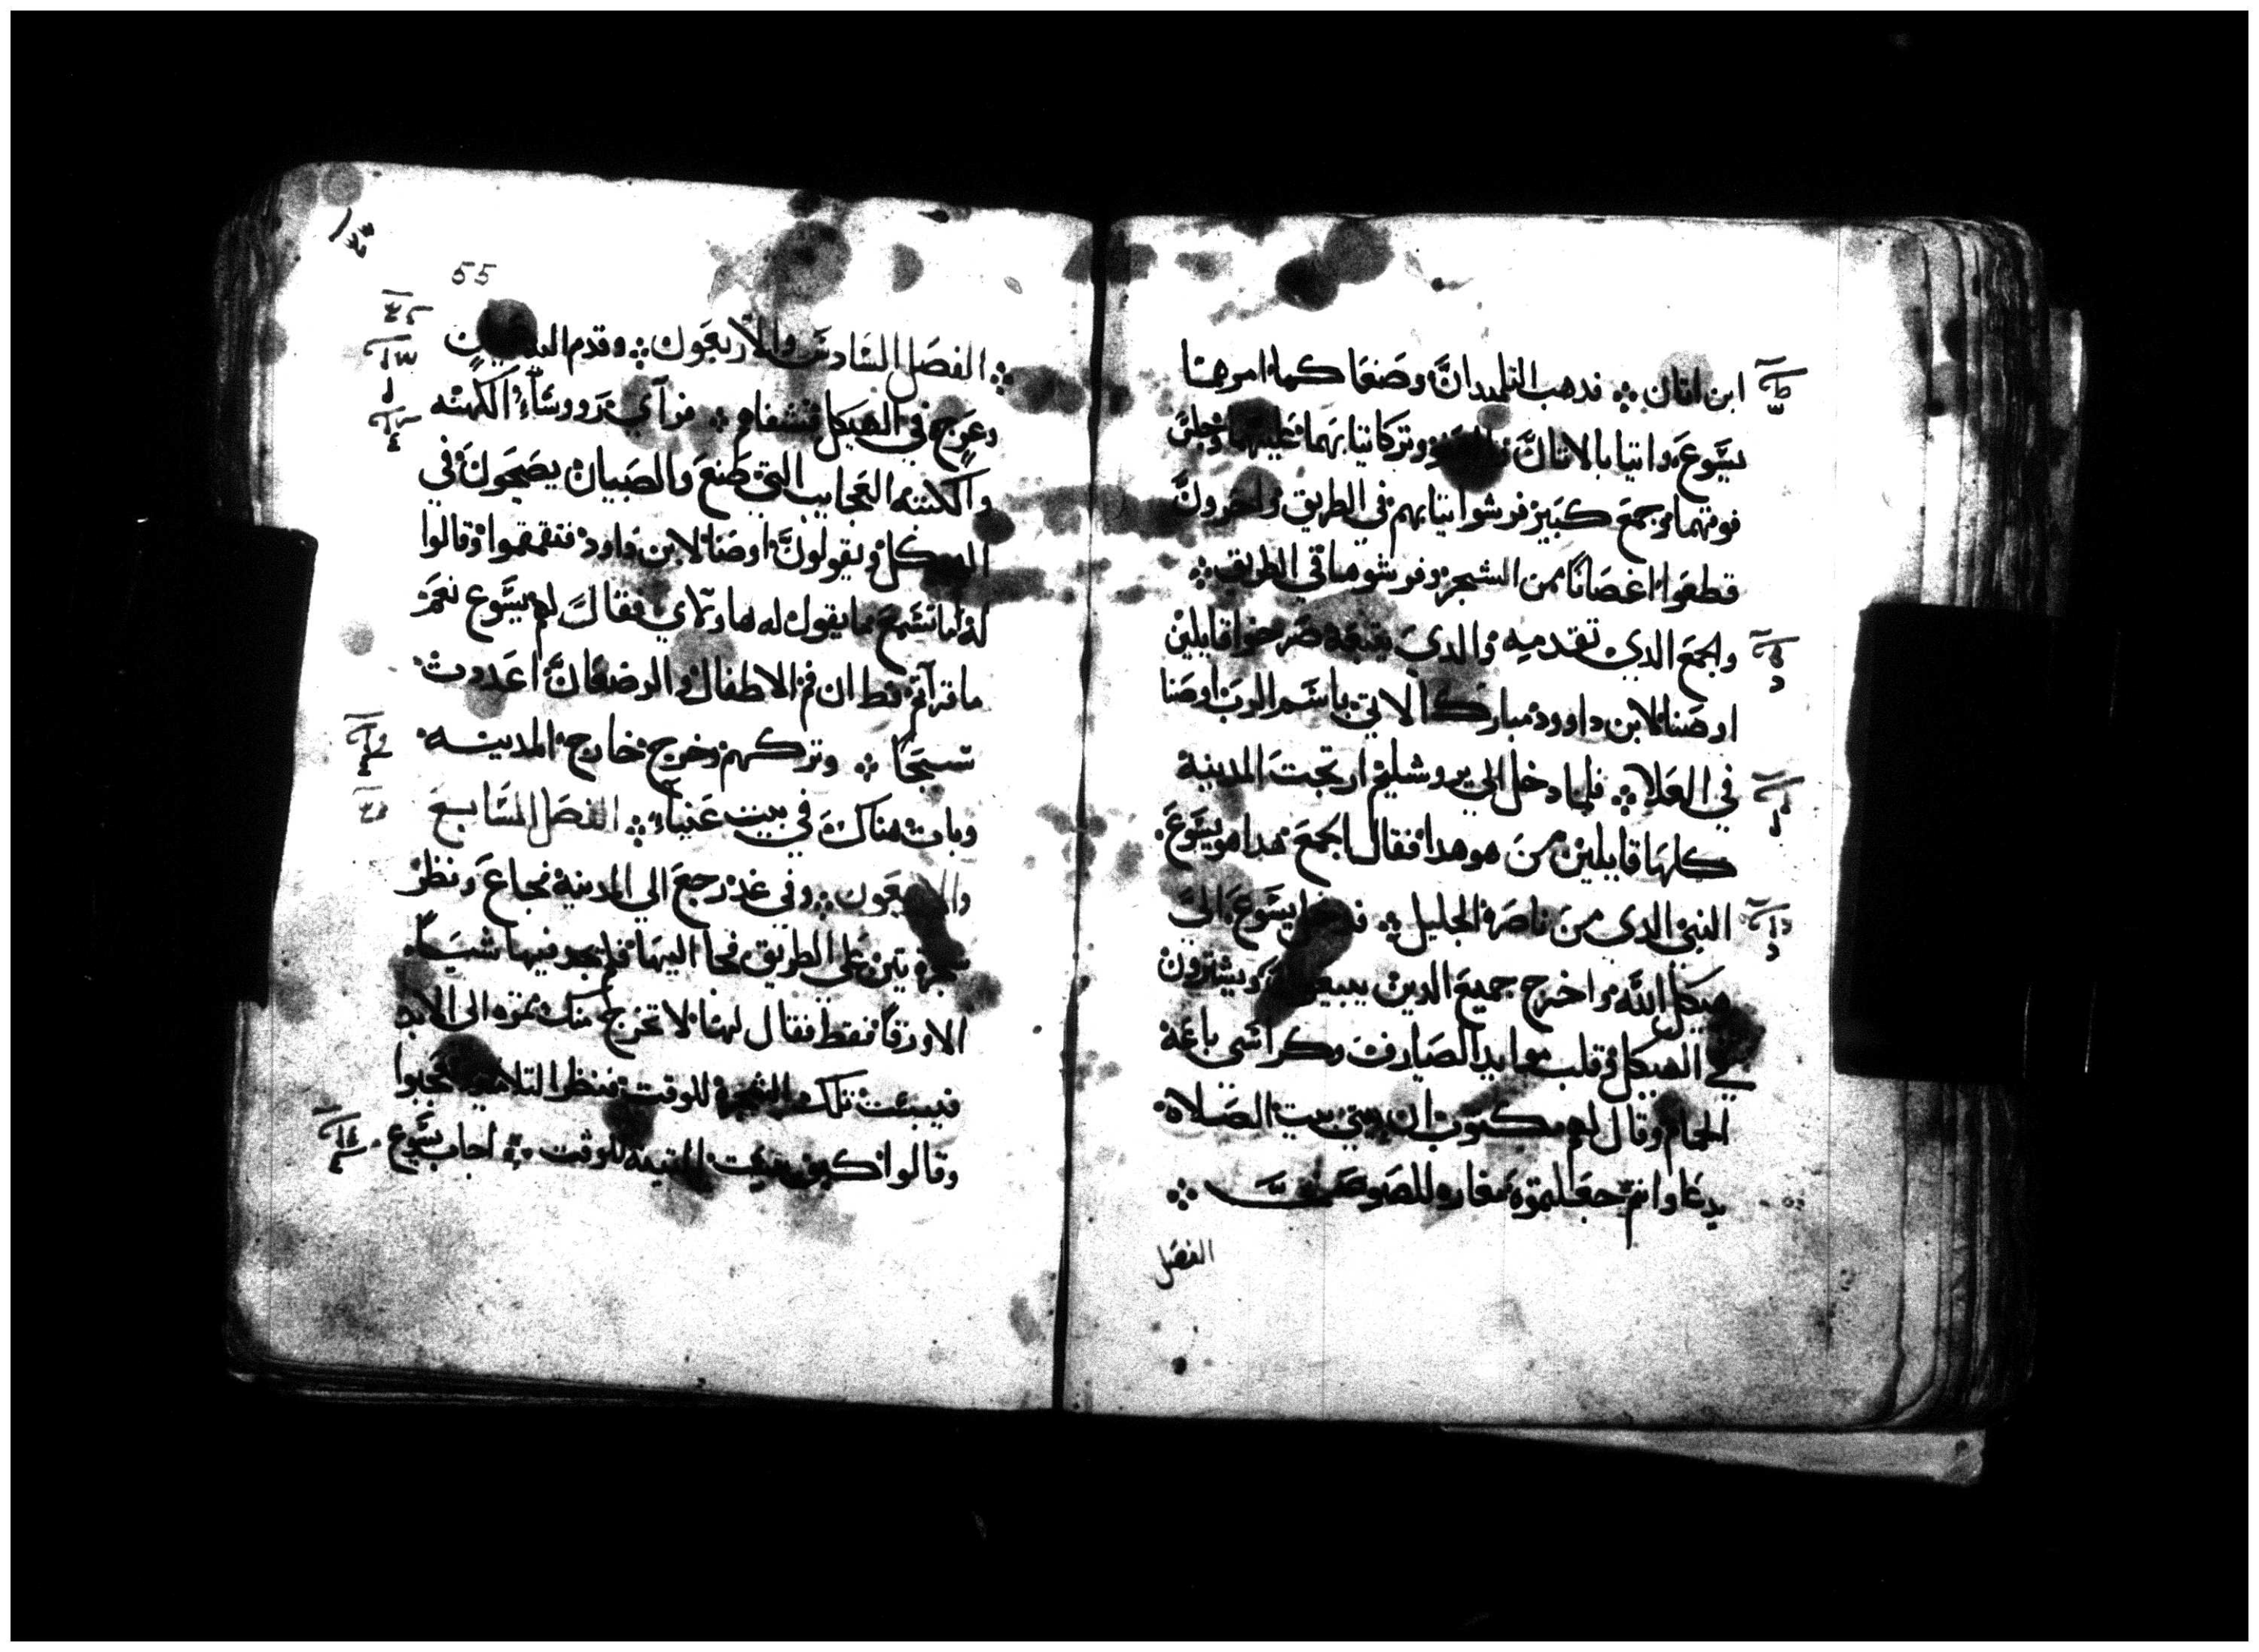 ابن اتان ܀ فدهب التلميدان وصنعا كما امرهما
يسوع واتيا بالاتان وتركا تيابهما عليهما وجلس
فوقهما وجمع كبير فرشوا تيابهم في الطريق واخرون
قطعوا اغصانا من الشجر وفرشوها في الطريق ܀
والجمع الدي تقدمه والدي يتبعه صرخوا قايلين
اوصنا لابن داوود مبارك الاتي باسم الرب اوصنا
في العلا ܀ فلما دخل الي يروشليم ارتجت المدينة
كلها قايلين من هو هدا فقال الجمع هدا هو يسوع
النبي الدي من ناصرة الجليل ܀ يسوع الي
هيكل الله واخرج جميع الدين ويشترون
في الهيكل وقلب موايد الصيارف وكراسي باعة
الحمام وقال لهم مكتوب ان بيتي بيت الصلاة
يدعا وانتم جعلتموه مغاره للصوص ܀
الفصل
55
܀ الفصل السادس والاربعون ܀ وقدم اليه
وعرج في الهيكل فشفاهم ܀ فرآي رووسآء الكهنه
والكتبه العجايب التي صنع والصبيان يصيحون في
الهيكل ويقولون اوصنا لابن داود فتقمقموا وقالوا
له اما تسمع ما يقول له هاولاي فقال لهم يسوع نعم
ما قرآتم قط ان من فم الاطفال والرضعان اعددت
تسبحا ܀ وتركهم وخرج خارج المدينه
وبات هناك في بيت عنيا ܀ الفصل السابع
والاربعون ܀ وفي غد رجع الي المدينة فجاع ونظر
شجرة تين علي الطريق فجا اليها فلم يجد فيها شيا
الا ورقا فقط فقال لها لا تخرج منك تمره الي الابد
فيبست تلك الشجرة للوقت فنظر التلاميد فتعجبوا
وقالوا كيف يبست التينه للوقت ܀ اجاب يسوع